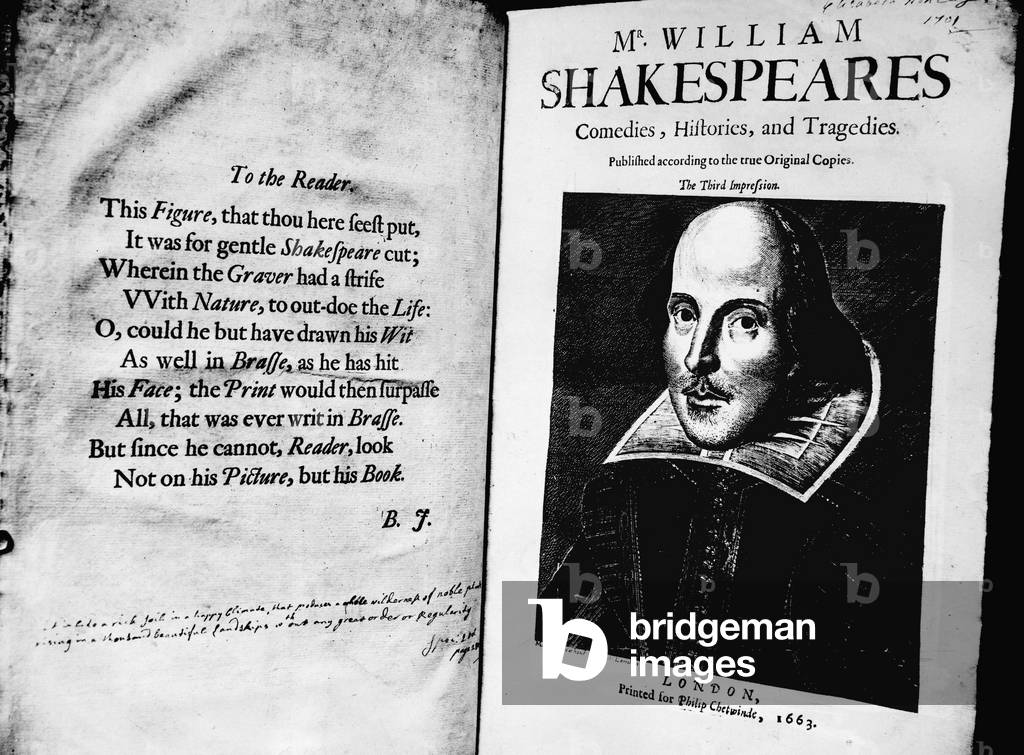 To the Reader.
This Figure, that thou here ſeeſt put,
It was for gentle Shakeſpeare cut;
Wherein the Graver had a ſtrife
VVith Nature, to out-doe the Life:
O, could he but have drawn his Wit
As well in Braſſe, as he has hit
His Face; the Print would then ſurpaſſe
All, that was ever writ in Braſſe.
But ſince he cannot, Reader, look
Not on his Picture, but his Book.
B. J.
to a rich ſoil in a happy Climate, that produces a whole wilderneſs of noble
in a thouſand beautiful Landſhips wth out any great order or Regularity
1701
Mr. WILLIAM
SHAKESPEARES
Comedies, Hiſtories, and Tragedies.
Publiſhed according to the true Original Copies.
The Third Impreſſion.
LONDON,
Printed for Philip Chetwinde, 1663.
b bridgeman
images